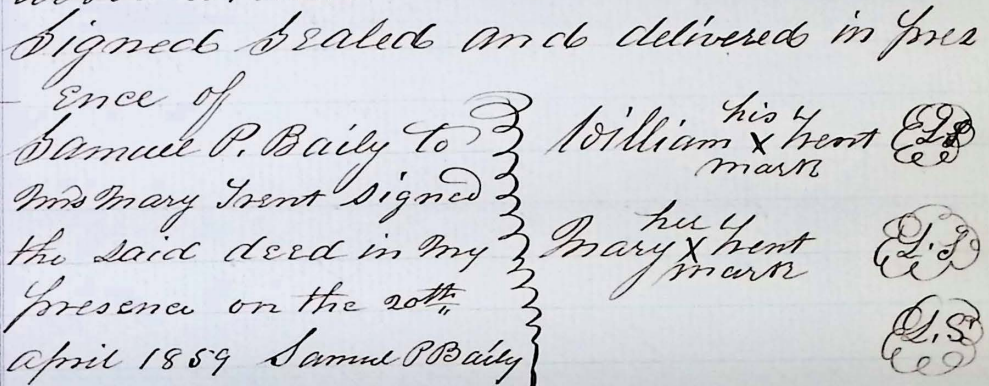 Signed Sealed and delivered in pres
ence of
Samuel P. Baily to
Mrs Mary Trent signed
the said deed in my
presence on the 20th
april 1859 Samuel P Baily
his
William X Trent L.S
mark
her
Mary X Trent L.S.
mark
L.S.